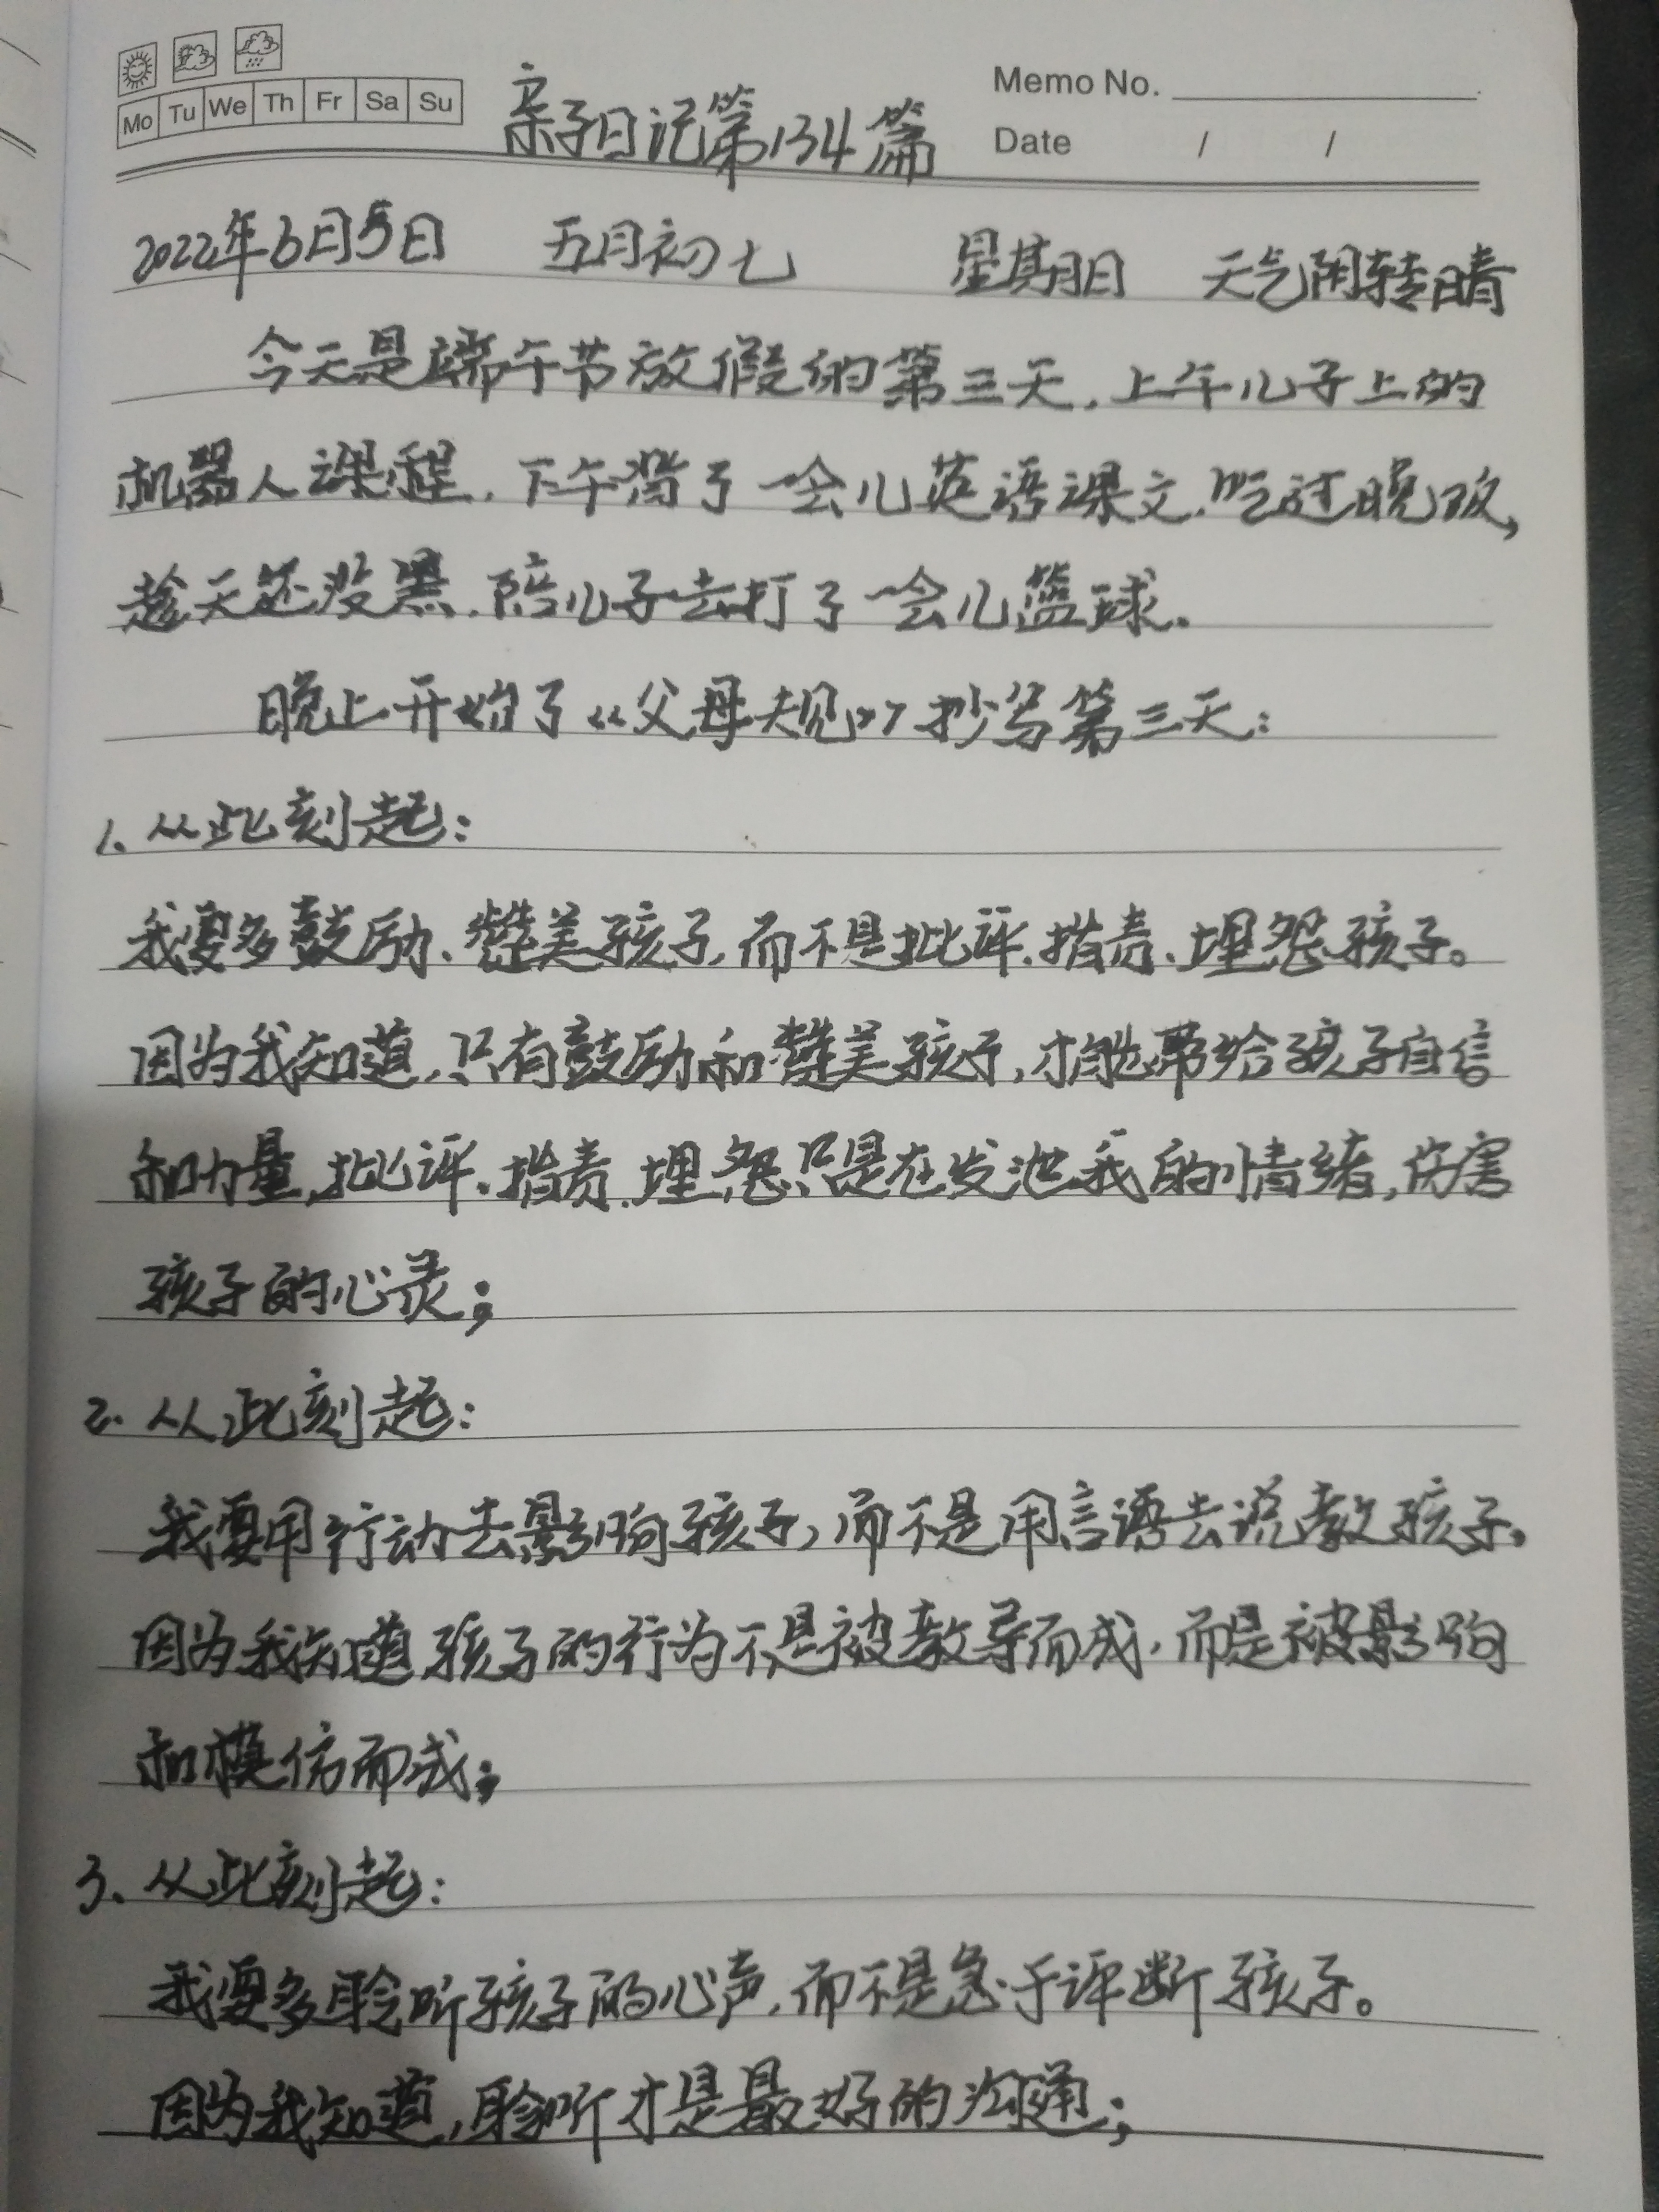 Mo Tu We Th Fr Sa Su
亲子日记第134篇
Memo No.
Date / /
2022年6月5日 五月初七 星期日 天气阴转晴
今天是端午节放假的第三天,上午儿子上的
机器人课程,下午背了一会儿英语课文,吃过晚饭,
趁天还没黑,陪儿子去打了一会儿篮球.
晚上开始了《父母规》抄写第三天:
1、从此刻起:
我要多鼓励、赞美孩子,而不是批评、指责、埋怨孩子。
因为我知道,只有鼓励和赞美孩子,才能带给孩子自信
和力量,批评、指责、埋怨只是在发泄我的情绪,伤害
孩子的心灵;
2、从此刻起:
我要用行动去影响孩子,而不是用言语去说教孩子,
因为我知道孩子的行为不是被教导而成,而是被影响
和模仿而成;
3、从此刻起:
我要多聆听孩子的心声,而不是急于评断孩子。
因为我知道,聆听才是最好的沟通;